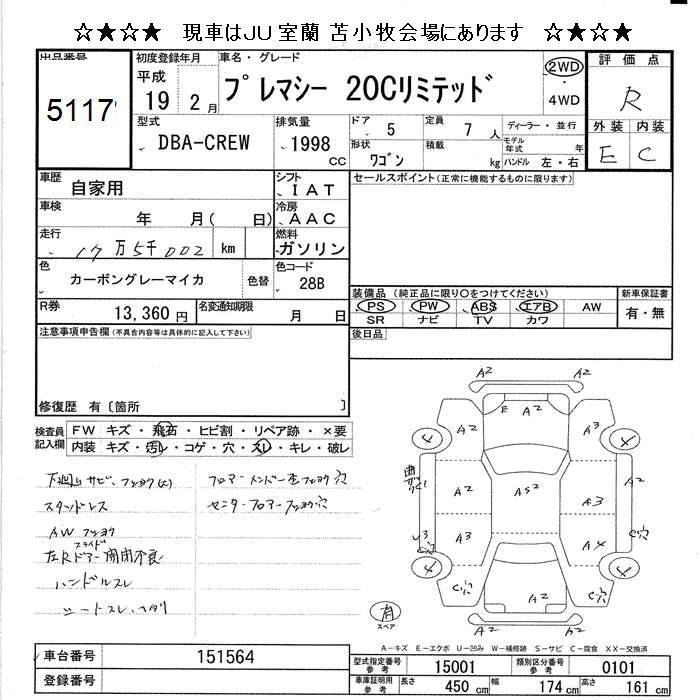 ☆★☆★ 現車はJU室蘭 苫小牧会場にあります ☆★☆★
出品番号
5117
初度登録年月
平成
19 2月
車名・グレード
プレマシー 20Cリミテッド
2WD
・
4WD
評価点
R
外装 内装
E C
型式
DBA-CREW
排気量
1998
cc
ドア 5
定員 7人
形状
ワゴン
積載
kg
ディーラー・並行
モデル年式 年
ハンドル 左・右
車歴
自家用
シフト
IAT
車検
年 月( 日)
冷房
AAC
走行
17万5千002 km
燃料
ガソリン
色
カーボングレーマイカ
色替
色コード
28B
R券
13,360円
名変通知期限
月 日
セールスポイント(正常に機能するものに限ります)
装備品(純正品に限り○をつけてください)
PS PW ABS エアB AW
SR ナビ TV カワ
新車保証書
有・無
注意事項申告欄(不具合内容等は具体的に記入して下さい)
後日品
修復歴 有〔箇所 〕
検査員記入欄
FW キズ・飛石・ヒビ割・リペア跡・×要
内装 キズ・汚レ・コゲ・穴・スレ・キレ・破レ
下廻りサビ、フショク(大)
スタッドレス
AWフショク
左Rスライドドアー開閉不良
ハンドルスレ
シートスレ、ヘタリ
フロアーメンバー左フショク穴
センターフロアーフショク穴
A2 A2
E A2
A2 A3
4 4
曲ガリ
C1
A2 AS2 A3
U3 A3 A4 C穴
4 4
C穴 A2 C穴
有
スペア
A2 A2
A-キズ E-エクボ U-凹み W-補修跡 S-サビ C-腐食 XX-交換済
車台番号 151564
登録番号
型式指定番号 参考 15001
類別区分番号 参考 0101
車庫証明用 参考 長さ 450cm 幅 174cm 高さ 161cm